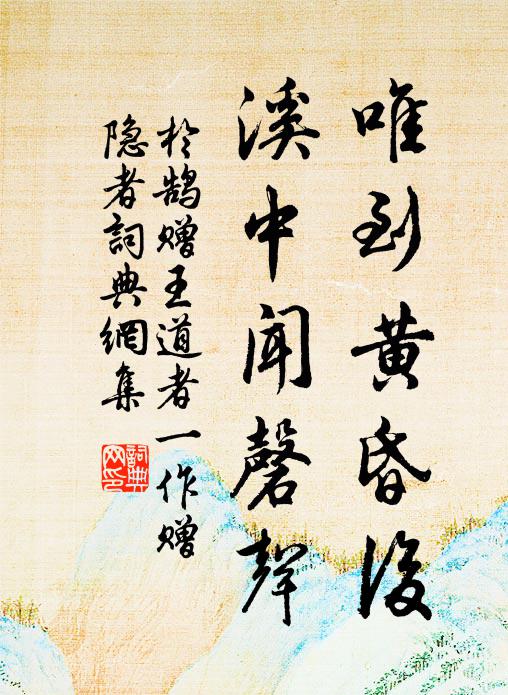 唯到黄昏後
溪中闻磬聲
於鹄赠王道者一作赠
隐者詞典網集
詞典网印